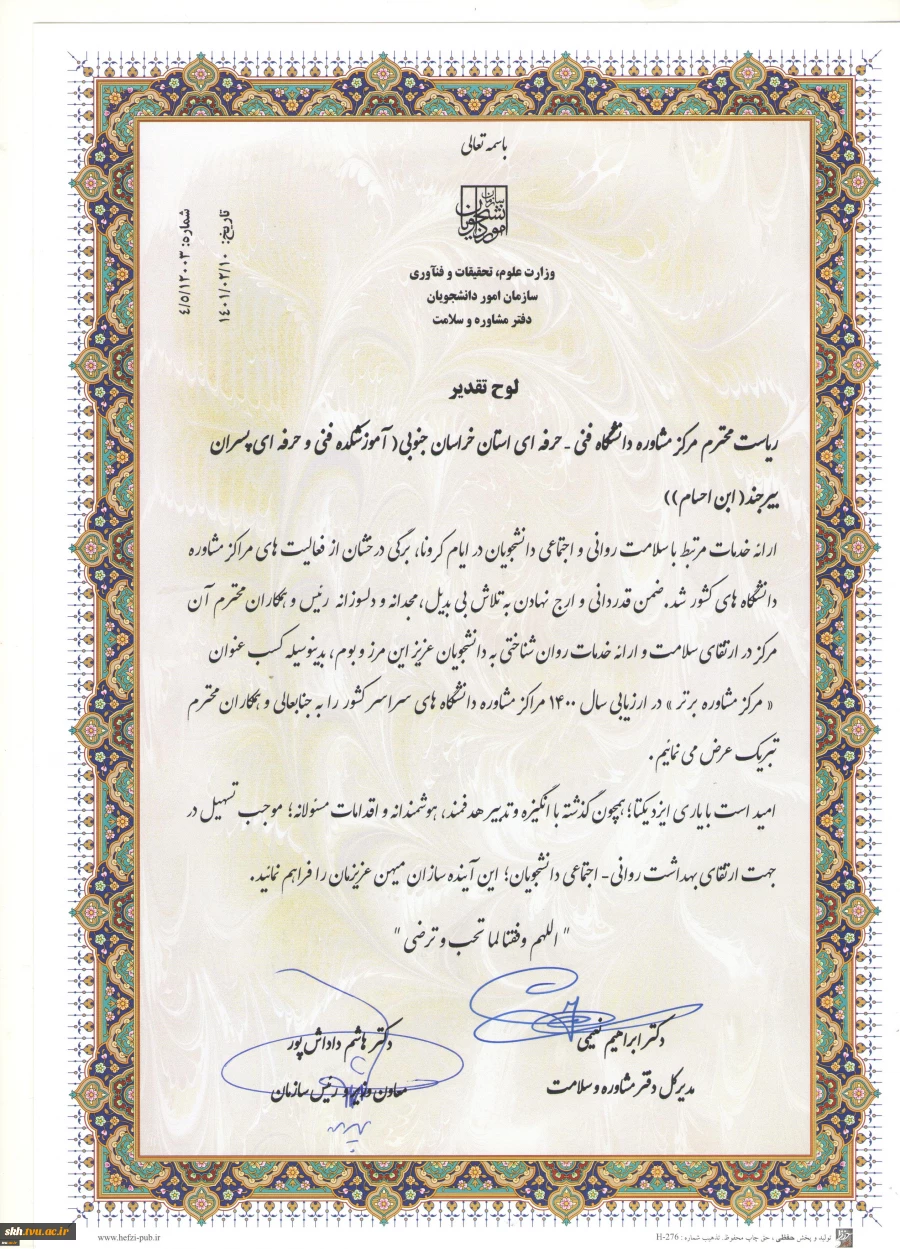 باسمه تعالی
سازمان
امور دانشجویان
شماره: ۴/۵/۱۲۰۰۳
تاریخ: ۱۴۰۱/۰۲/۱۰
وزارت علوم، تحقیقات و فنآوری
سازمان امور دانشجویان
دفتر مشاوره و سلامت
لوح تقدیر
ریاست محترم مرکز مشاوره دانشگاه فنی - حرفه ای استان خراسان جنوبی( آموزشکده فنی و حرفه ای پسران
بیرجند( ابن احسام))
ارائه خدمات مرتبط با سلامت روانی و اجتماعی دانشجویان در ایام کرونا، برگی درخشان از فعالیت های مراکز مشاوره
دانشگاه های کشور شد. ضمن قدردانی و ارج نهادن به تلاش بی بدیل، مجدانه و دلسوزانه رئیس و همکاران محترم آن
مرکز در ارتقای سلامت و ارائه خدمات روان شناختی به دانشجویان عزیز این مرز و بوم، بدینوسیله کسب عنوان
« مرکز مشاوره برتر » در ارزیابی سال ۱۴۰۰ مراکز مشاوره دانشگاه های سراسر کشور را به جنابعالی و همکاران محترم
تبریک عرض می نمائیم.
امید است با یاری ایزد یکتا؛ همچون گذشته با انگیزه و تدبیر هدفمند، هوشمندانه و اقدامات مسئولانه؛ موجب تسهیل در
جهت ارتقای بهداشت روانی- اجتماعی دانشجویان؛ این آینده سازان میهن عزیزمان را فراهم نمائید.
" اللهم وفقنا لما تحب و ترضی "
دکتر ابراهیم نعیمی
مدیرکل دفتر مشاوره و سلامت
دکتر هاشم داداش پور
معاون وزیر و رئیس سازمان
skh.tvu.ac.ir
www.hefzi-pub.ir
تولید و پخش حفظی ، حق چاپ محفوظ. تذهیب شماره : H-276